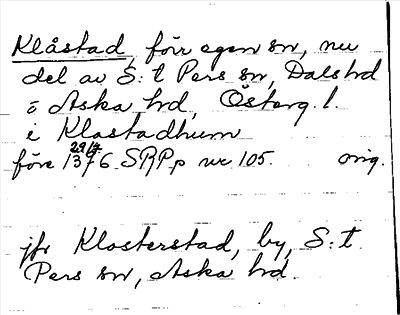 Klåstad, förr egen sn, nu
del av S:t Pers sn, Dals hd
o Aska hd, Österg. l.
i Klastadhum
före 29/7 1376 SRPp nr 105. orig.
jfr Klosterstad, by, S:t
Pers sn, Aska hd.